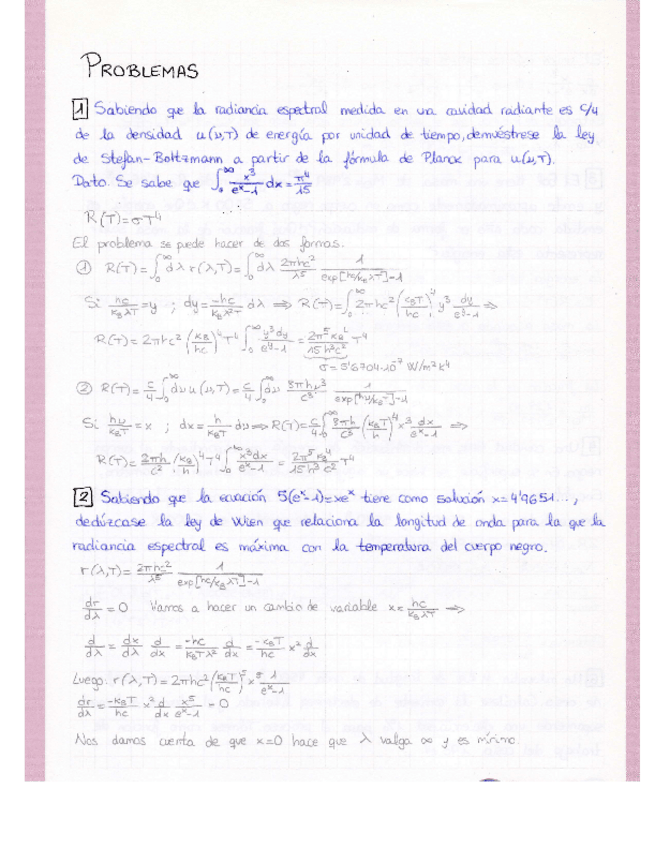 PROBLEMAS
1 Sabiendo que la radiancia espectral medida en una cavidad radiante es c/4
de la densidad u(ν,T) de energía por unidad de tiempo, demuéstrese la ley
de Stefan-Boltzmann a partir de la fórmula de Planck para u(ν,T).
Dato. Se sabe que ∫₀^∞ x³/(eˣ-1) dx = π⁴/15
R(T)=σT⁴
El problema se puede hacer de dos formas:
① R(T)=∫₀^∞ dλ r(λ,T)=∫₀^∞ dλ 2πhc²/λ⁵ 1/(exp[hc/k_BλT]-1)
Si hc/(k_BλT)=y ; dy=-hc/(k_Bλ²T) dλ ⟹ R(T)=∫₀^∞ 2πhc² (k_BT/hc)⁴ y³ dy/(eʸ-1) ⟹
R(T)=2πhc² (k_B/hc)⁴ T⁴ ∫₀^∞ y³dy/(eʸ-1) = 2π⁵k_B⁴/(15h³c²) T⁴
σ=5'6704·10⁻⁷ W/m²K⁴
② R(T)=c/4 ∫₀^∞ dν u(ν,T)=c/4 ∫₀^∞ dν 8πhν³/c³ 1/(exp[hν/k_BT]-1)
Si hν/(k_BT)=x ; dx=h/(k_BT) dν ⟹ R(T)=c/4 ∫₀^∞ 8πh/c³ (k_BT/h)⁴ x³ dx/(eˣ-1) ⟹
R(T)=2πh/c² (k_B/h)⁴ T⁴ ∫₀^∞ x³dx/(eˣ-1) = 2π⁵k_B⁴/(15h³c²) T⁴
2 Sabiendo que la ecuación 5(eˣ-1)=xeˣ tiene como solución x=4'9651...,
dedúzcase la ley de Wien que relaciona la longitud de onda para la que la
radiancia espectral es máxima con la temperatura del cuerpo negro.
r(λ,T)=2πhc²/λ⁵ 1/(exp[hc/k_BλT]-1)
dr/dλ=0 Vamos a hacer un cambio de variable x=hc/(k_BλT) ⟹
d/dλ = dx/dλ d/dx = -hc/(k_BTλ²) d/dx = -k_BT/hc x² d/dx
Luego: r(λ,T)=2πhc² (k_BT/hc)⁵ x⁵ 1/(eˣ-1)
dr/dλ = -k_BT/hc x² d/dx x⁵/(eˣ-1) = 0
Nos damos cuenta de que x=0 hace que λ valga ∞ y es mínimo.